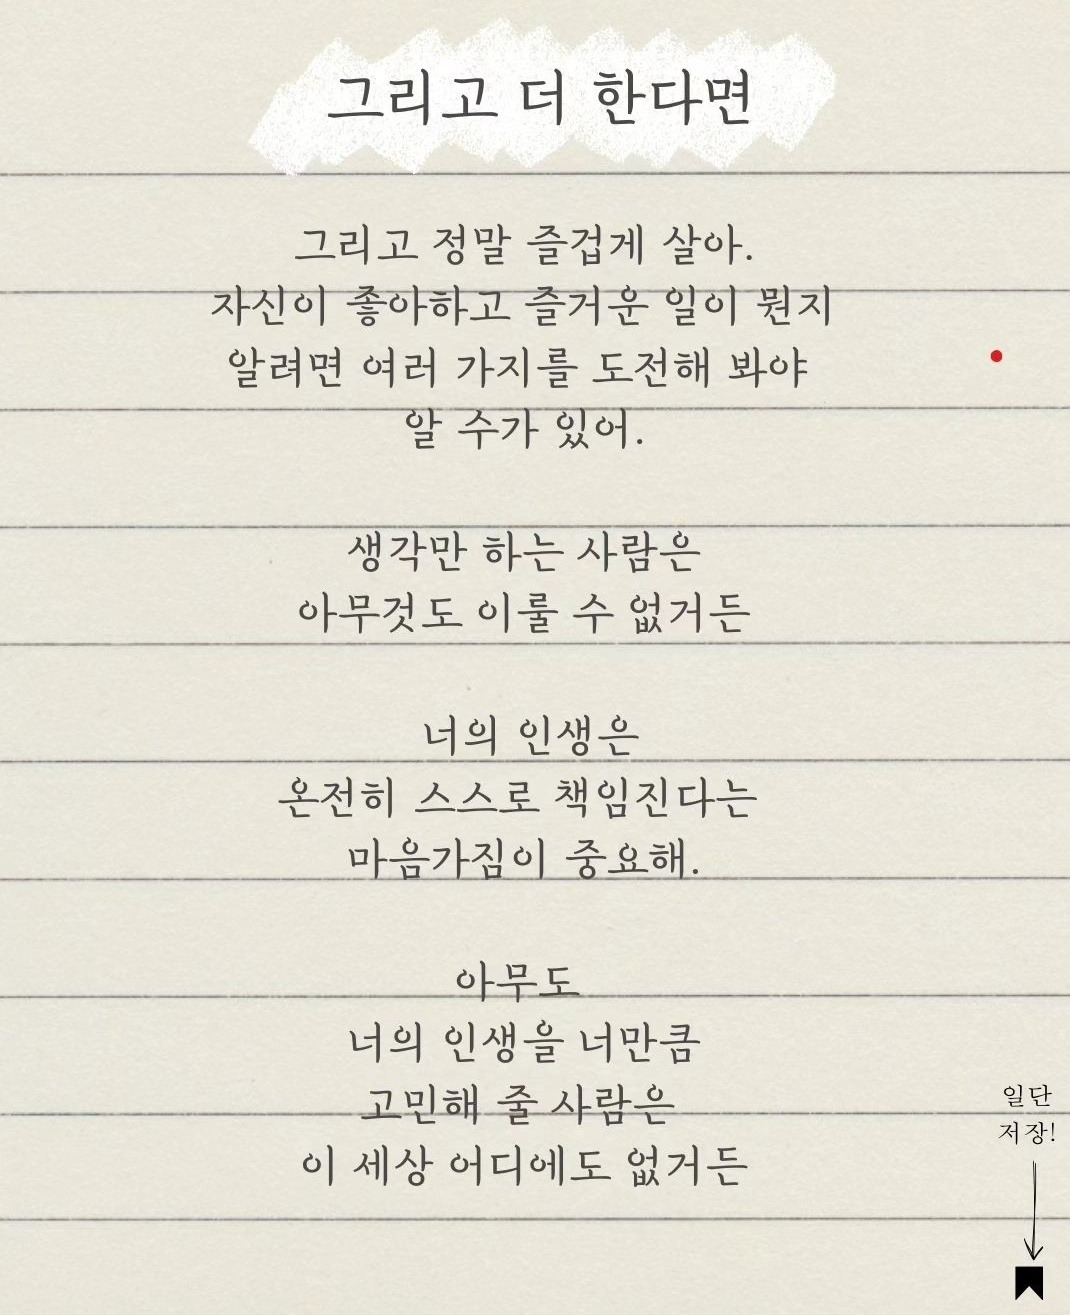 그리고 더 한다면
그리고 정말 즐겁게 살아.
자신이 좋아하고 즐거운 일이 뭔지
알려면 여러 가지를 도전해 봐야
알 수가 있어.
생각만 하는 사람은
아무것도 이룰 수 없거든
너의 인생은
온전히 스스로 책임진다는
마음가짐이 중요해.
아무도
너의 인생을 너만큼
고민해 줄 사람은
이 세상 어디에도 없거든
일단
저장!